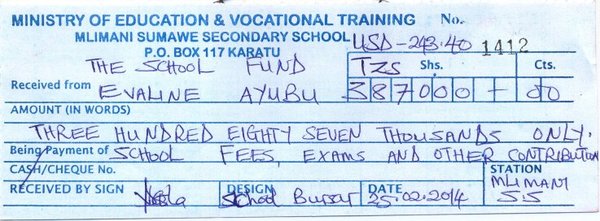 MINISTRY OF EDUCATION & VOCATIONAL TRAINING No.
MLIMANI SUMAWE SECONDARY SCHOOL
P.O. BOX 117 KARATU USD-243.40 1412
THE SCHOOL FUND TZS Shs. Cts.
Received from EVALINE AYUBU 387000 - 00
AMOUNT (IN WORDS)
THREE HUNDRED EIGHTY SEVEN THOUSANDS ONLY.
Being Payment of SCHOOL FEES, EXAMS AND OTHER CONTRIBUTION
CASH/CHEQUE No. STATION
RECEIVED BY SIGN DESIGN School Bursar DATE 25.02.2014 MLIMANI
S.S